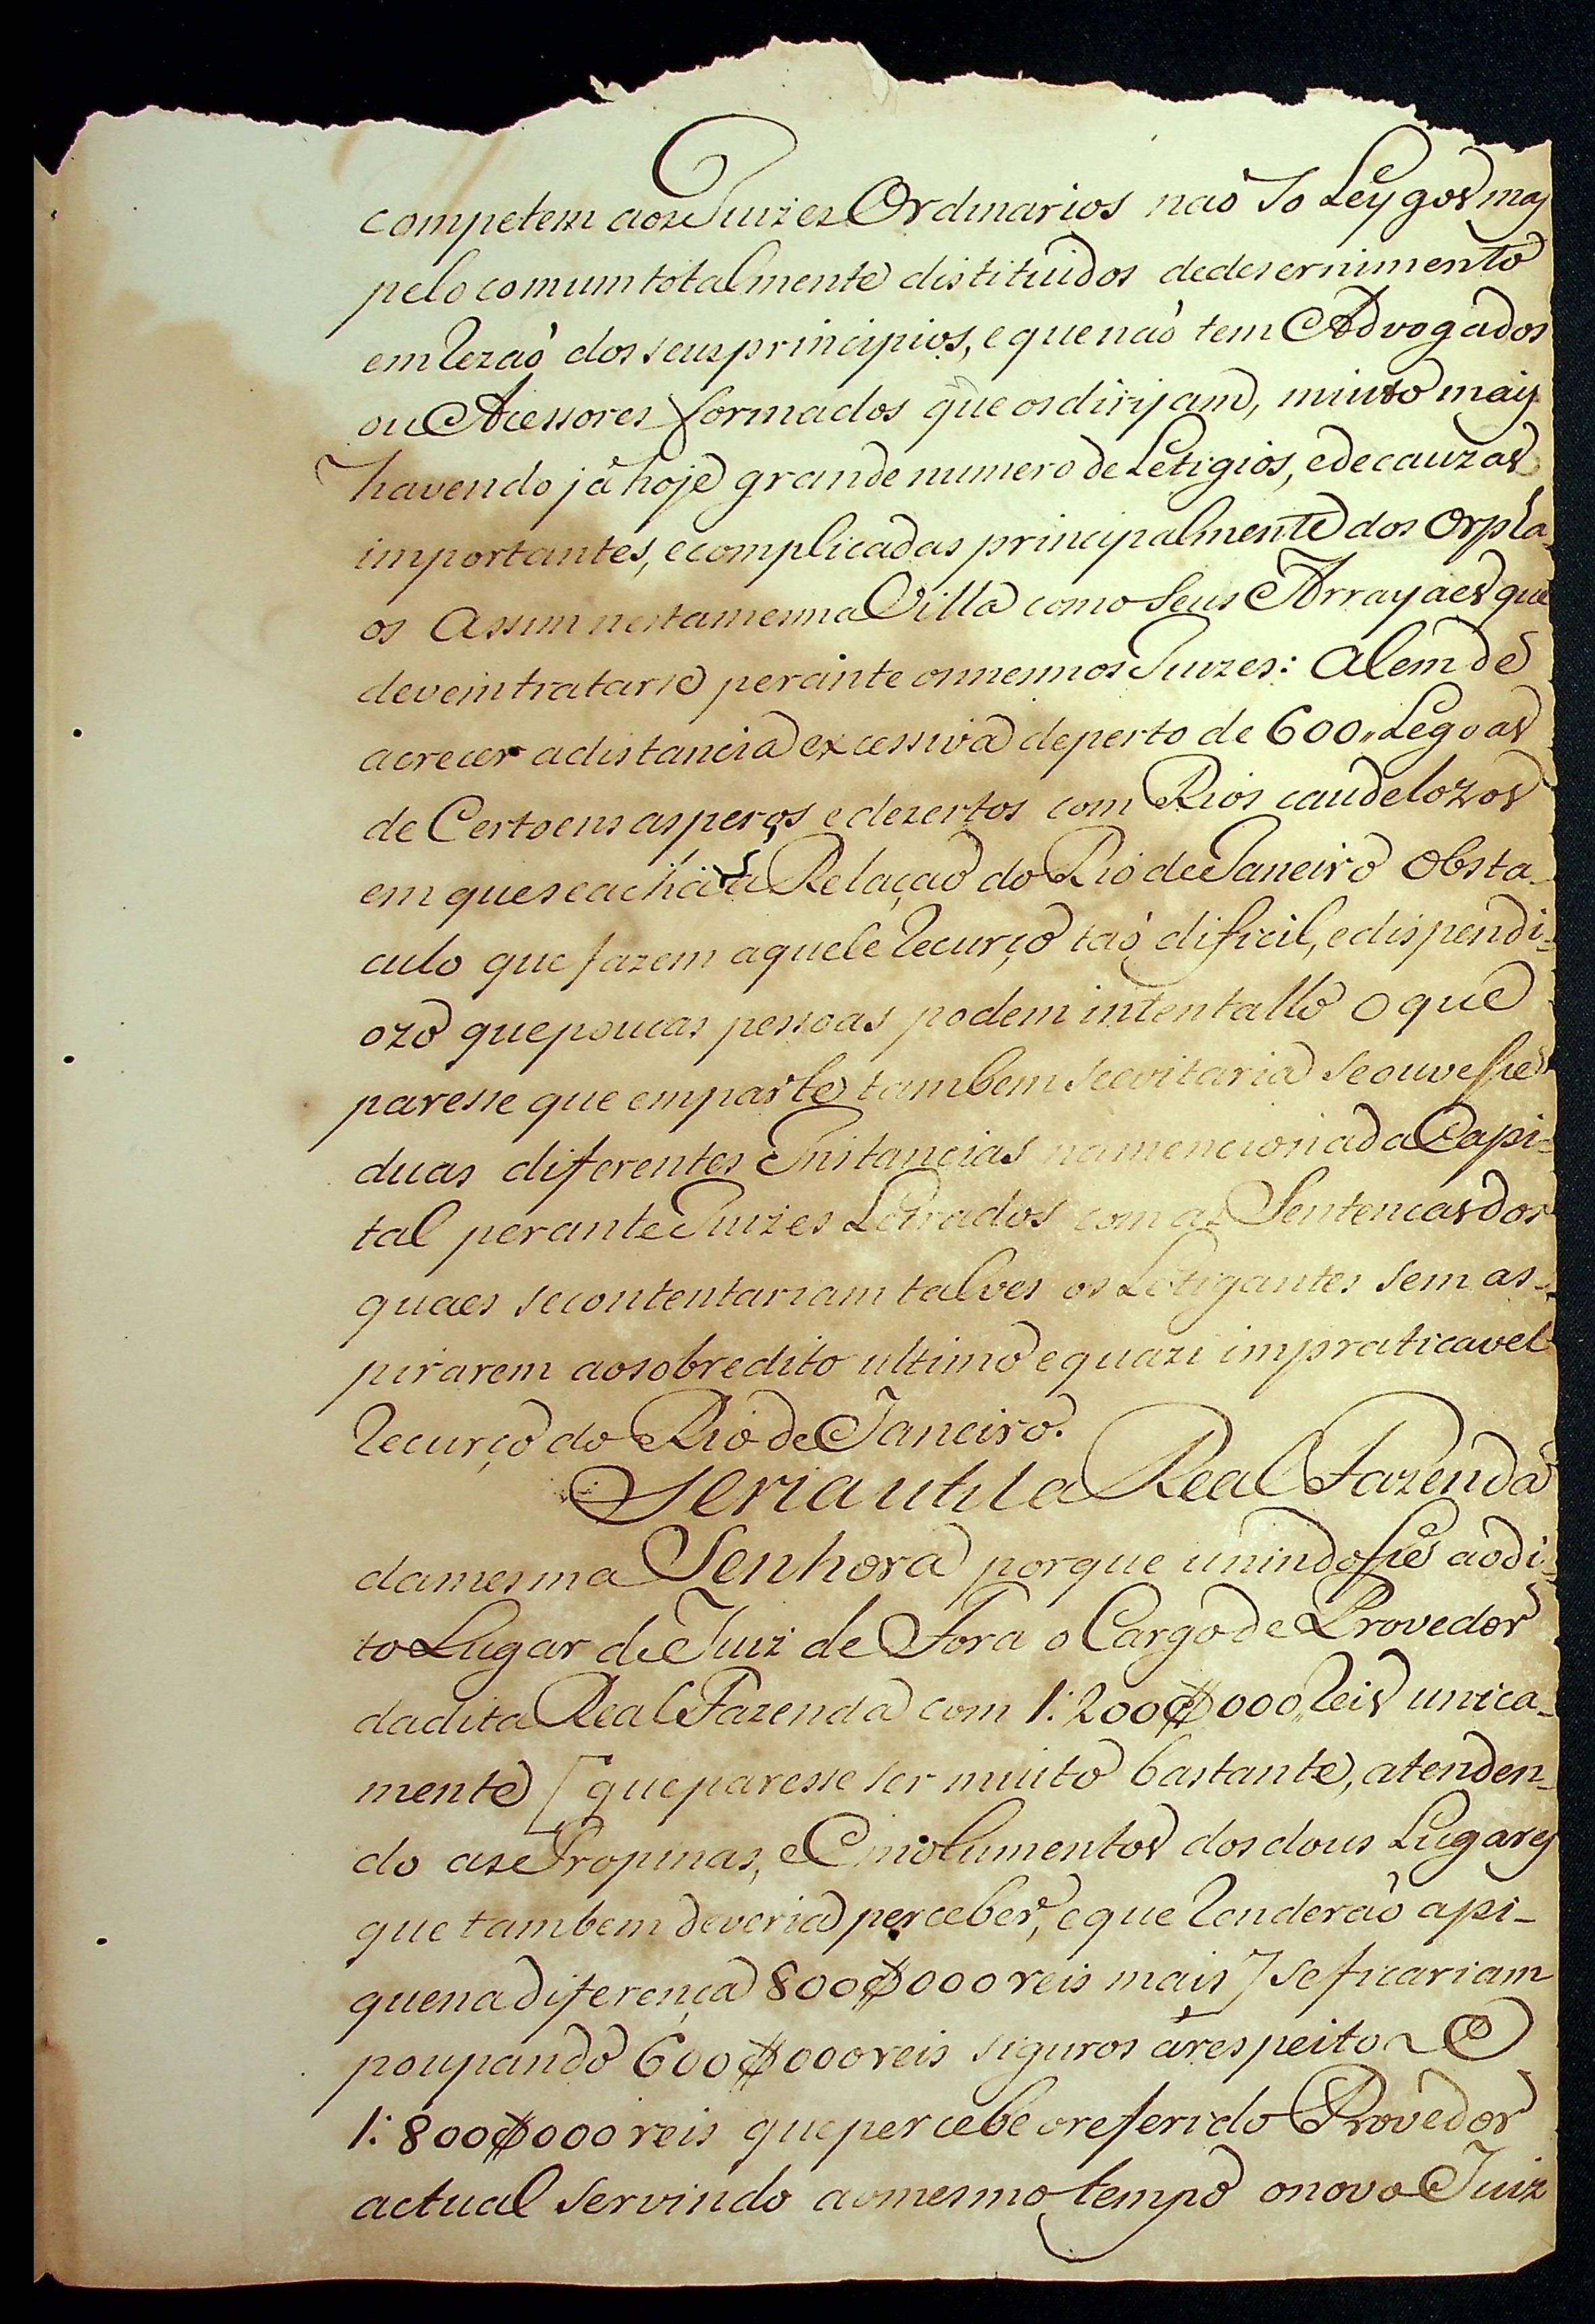 competem aos Juizes Ordinarios naõ so Leygos mas
pelo comum totalmente distituidos de desernimento
em rezaõ dos seus principios, e que naõ tem Advogados
ou Acessores formados que os dirijam, miuto mais
havendo já hoje grande numero de Letigios, e de cauzas
importantes, e complicadas principalmente dos Orpha-
os Assim nesta mesma Villa como seus Arrayaes que
devem tratarse perante os mesmos Juizes: Alem de
acrecer a distancia excessiva de perto de 600,, Legoas
de Certoens asperos e dezertos com Rios caudelozos
em que se acha a Relaçaõ do Rio de Janeiro Obsta-
culo que fazem aquele recurço taõ dificil, e dispendi-
ozo que poucas pessoas podem intentallo o que
paresse que em parte tambem se evitaria se ouvesse
duas diferentes Instancias na mencionada Capi-
tal perante Juizes Letrados com as Sentencas dos
quaes se contentariam talves os Letigantes sem as-
pirarem ao sobredito ultimo e quazi impraticavel
recurço do Rio de Janeiro.
Seria util a Real Fazenda
da mesma Senhora porque unindosse ao di-
to Lugar de Juiz de Fora o Cargo de Provedor
da dita Real Fazenda com 1:200$000 reis unica-
mente [que paresse ser miuto bastante, atenden-
do as Propinas, e Emolumentos dos dous Lugares
que tambem deveria perceber, e que renderaõ a pi-
quena diferença 800$000 reis mais] se ficariam
poupando 600$000 reis siguros á respeito de
1:800$000 reis que percebe o referido Provedor
actual servindo ao mesmo tempo o novo Juiz